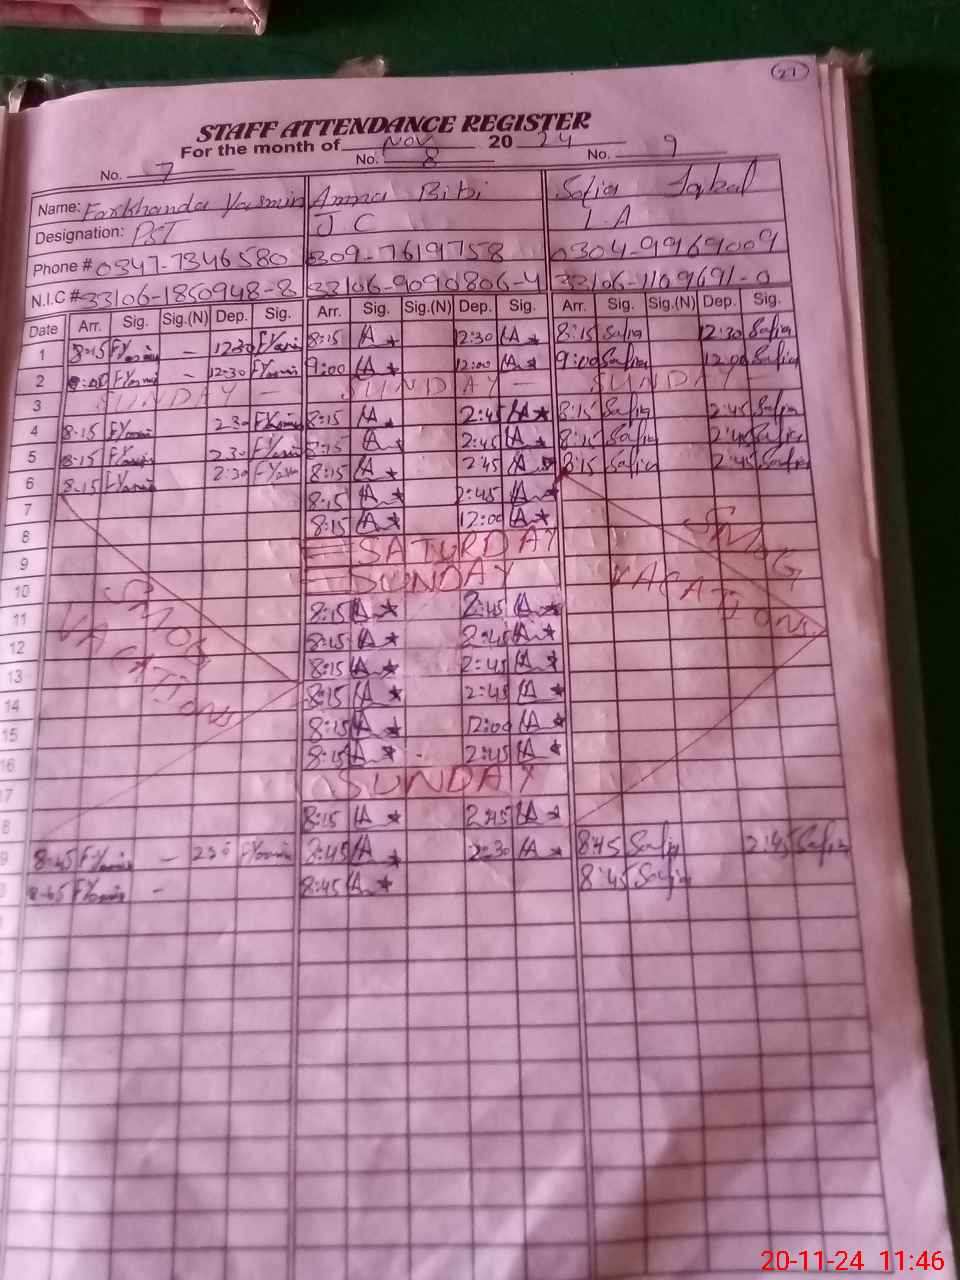 27
STAFF ATTENDANCE REGISTER
For the month of Nov 2024
No. 7 No. 8 No. 9
Name: Farkhanda Yasmin Amna Bibi Sofia Iqbal
Designation: PST J C L A
Phone # 0347-7346580 0309-7619758 0304-9969009
N.I.C # 33106-1850948-8 33106-9090806-4 33106-1109691-0
Date Arr. Sig. Sig.(N) Dep. Sig. Arr. Sig. Sig.(N) Dep. Sig. Arr. Sig. Sig.(N) Dep. Sig.
1 8:15 FYasmin - 12:30 FYasmin 8:15 A 12:30 A 8:15 Safia 12:30 Safia
2 FYasmin - 12:30 FYasmin 9:00 A 12:00 A 9:00 Safia 12:00 Safia
3 SUNDAY - SUNDAY - SUNDAY -
4 8:15 FYasmin 2:30 FYasmin 8:15 A 2:45 A 8:15 Safia 2:45 Safia
5 8:15 FYasmin 2:30 FYasmin 8:15 A 2:45 A 8:15 Safia 2:45 Safia
6 8:15 FYasmin 2:30 FYasmin 8:15 A 2:45 A 8:15 Safia 2:45 Safia
7 8:15 A 2:45 A
8 8:15 A 12:00 A SMOG
9 SATURDAY
10 SUNDAY VACATIONS
11 SMOG 8:15 A 2:45 A
12 VACATIONS 8:15 A 2:45 A
13 8:15 A 2:45 A
14 8:15 A 2:45 A
15 8:15 A 12:00 A
16 8:15 A - 2:45 A
7 SUNDAY
8 8:15 A 2:45 A
9 8:45 FYasmin - 2:30 FYasmin 8:45 A 2:30 A 8:45 Safia 2:45 Safia
8:45 FYasmin - 8:45 A 8:45 Safia
20-11-24 11:46